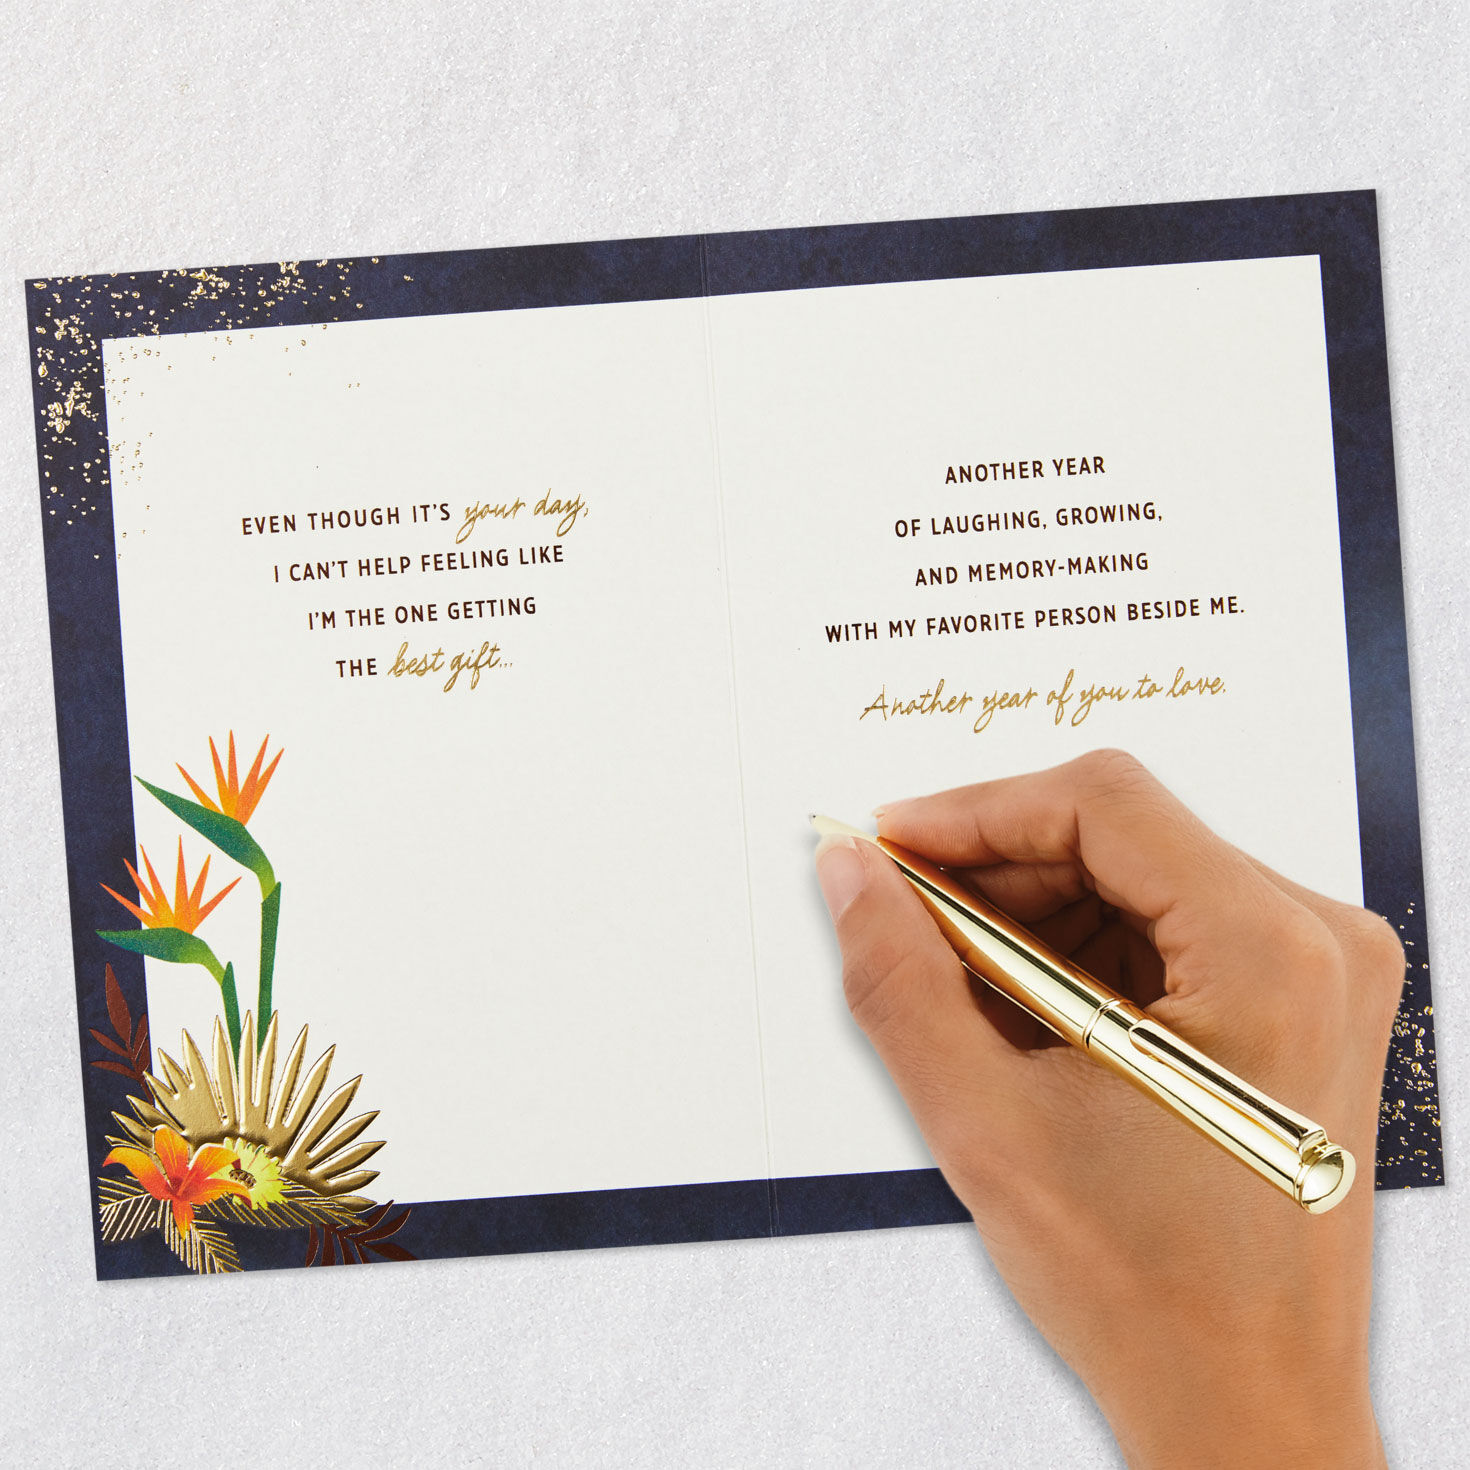 EVEN THOUGH IT'S your day,
I CAN'T HELP FEELING LIKE
I'M THE ONE GETTING
THE best gift...
ANOTHER YEAR
OF LAUGHING, GROWING,
AND MEMORY-MAKING
WITH MY FAVORITE PERSON BESIDE ME.
Another year of you to love.